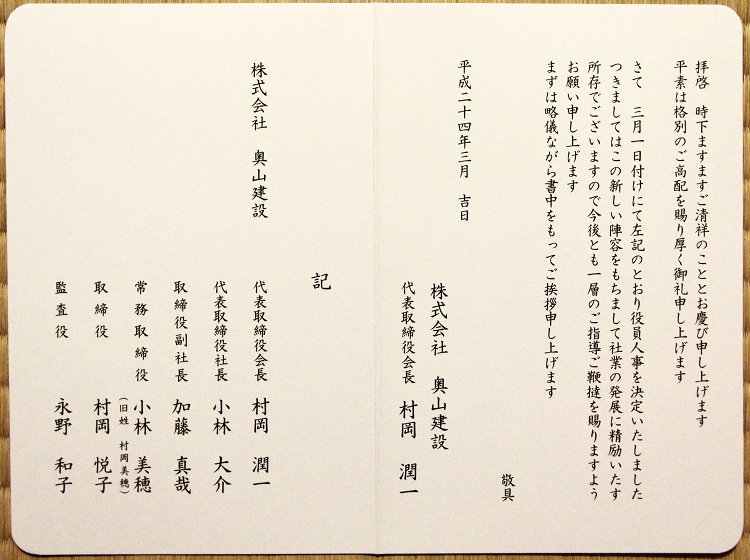 拝啓　時下ますますご清祥のこととお慶び申し上げます
平素は格別のご高配を賜り厚く御礼申し上げます
さて　三月一日付けにて左記のとおり役員人事を決定いたしました
つきましてはこの新しい陣容をもちまして社業の発展に精励いたす
所存でございますので今後とも一層のご指導ご鞭撻を賜りますよう
お願い申し上げます
まずは略儀ながら書中をもってご挨拶申し上げます
敬具
平成二十四年三月　吉日
株式会社　奥山建設
代表取締役会長　村岡　潤一
記
株式会社　奥山建設
代表取締役会長　村岡　潤一
代表取締役社長　小林　大介
取締役副社長　加藤　真哉
常務取締役　小林　美穂
（旧姓　村岡美穂）
取締役　村岡　悦子
監査役　永野　和子